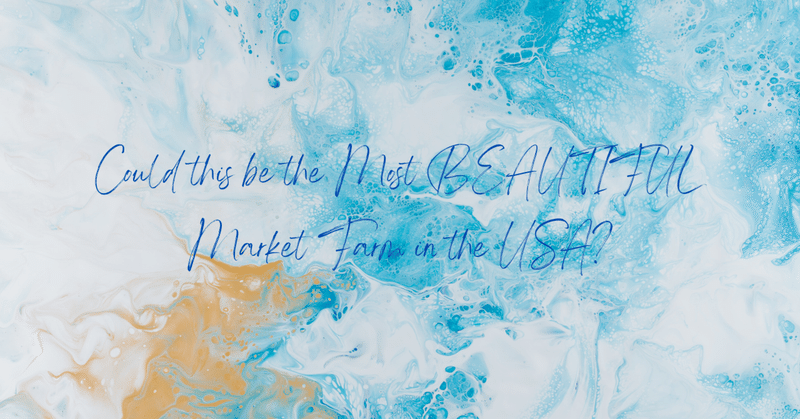 Could this be the Most BEAUTIFUL
Market Farm in the USA?